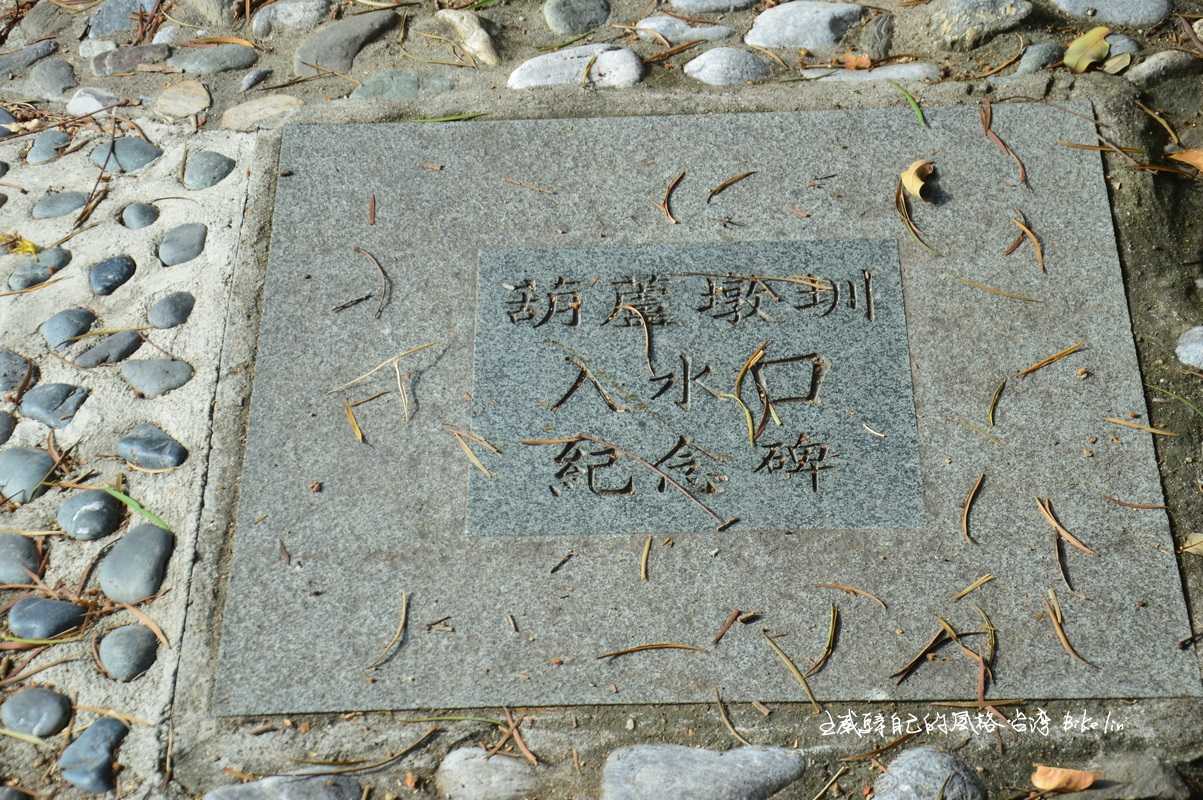 葫蘆墩圳
入水口
紀念碑
自己的風格 台湾 Biko lin